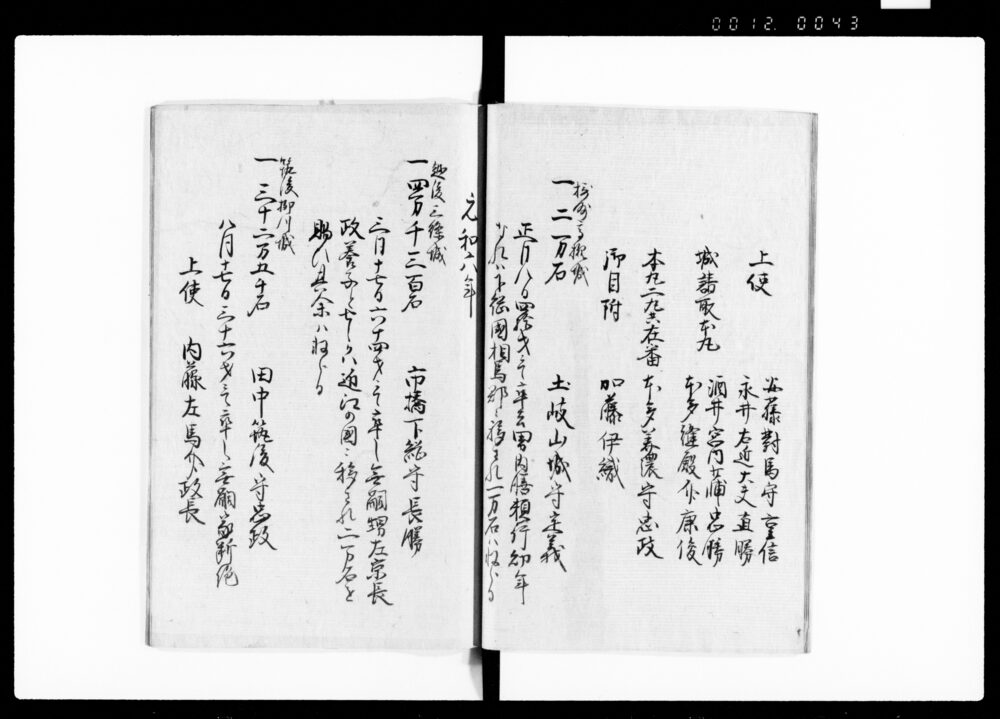 0012.0043
上使
安藤對馬守重信
永井右近大夫直勝
城請取本丸
酒井宮内少輔忠勝
本多縫殿介康俊
本丸二丸在番
本多美濃守忠政
御目附
加藤伊織
摂州高槻城
一 二万石
土岐山城守定義
正月八日四十才ニて卒去男内膳頼行幼年
なれハ下総國相馬郡ニ移され一万石ハ
元和六年
越後三條城
一 四万千三百石
市橋下総守長勝
三月十七日六十四才ニて卒し無嗣甥左京長
政養子となりしかハ近江の國ニ移され二万石を
賜ハり其余ハ
筑後柳川城
一 三十二万五千石
田中筑後守忠政
八月十七日三十六才ニて卒し無嗣家断絶
上使
内藤左馬介政長